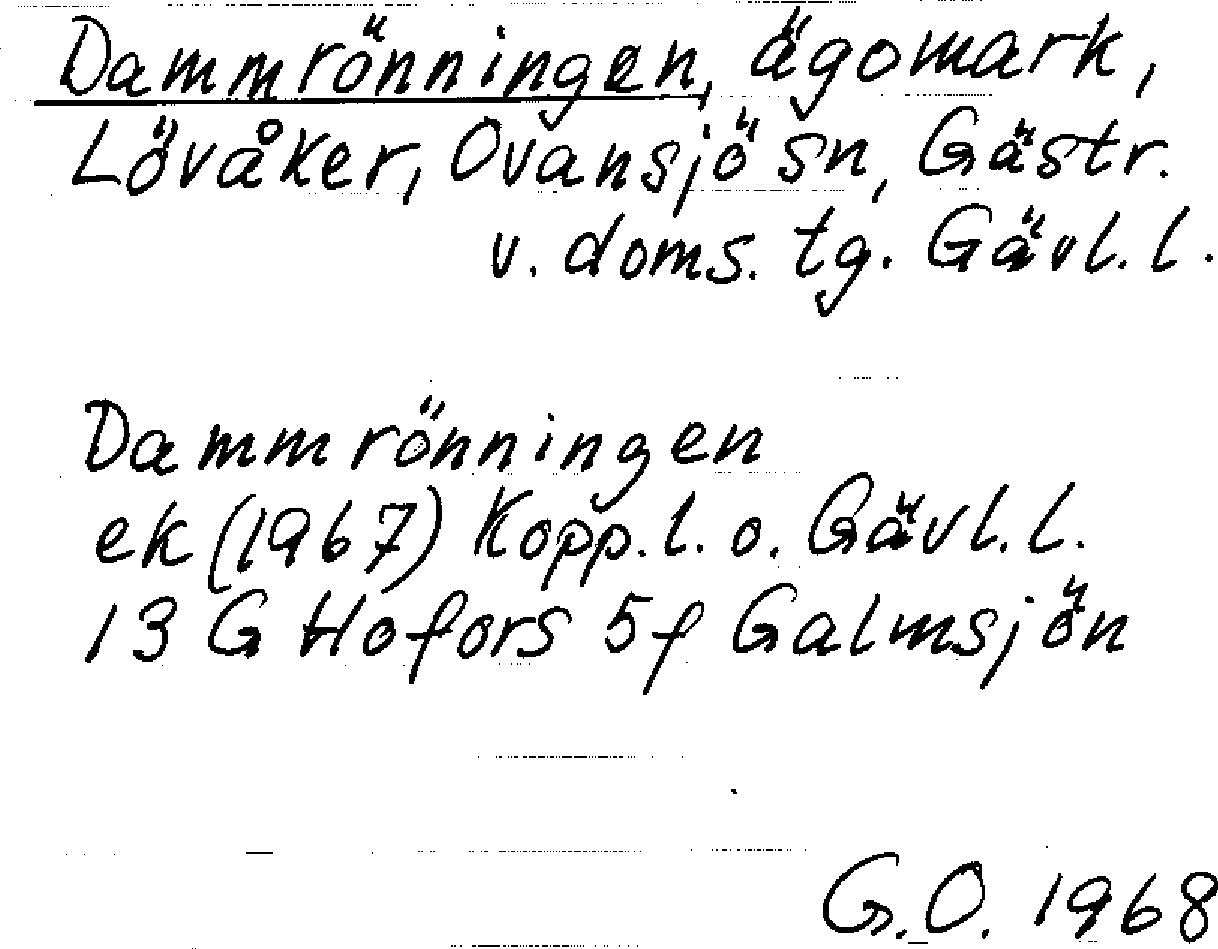 Dammrönningen, ägomark,
Lövåker, Ovansjö sn, Gästr.
v. doms. tg. Gävl. l.
Dammrönningen
ek (1967) Kopp. l. o. Gävl. l.
13 G Hofors 5f Galmsjön
G.O. 1968